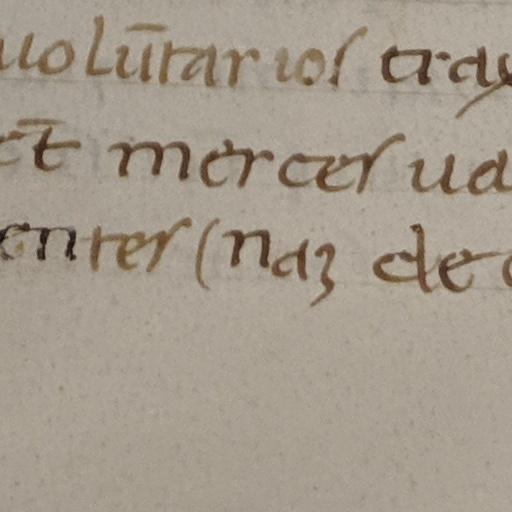 uolūtarios tray
et̄ merces ua
enter (naʒ de